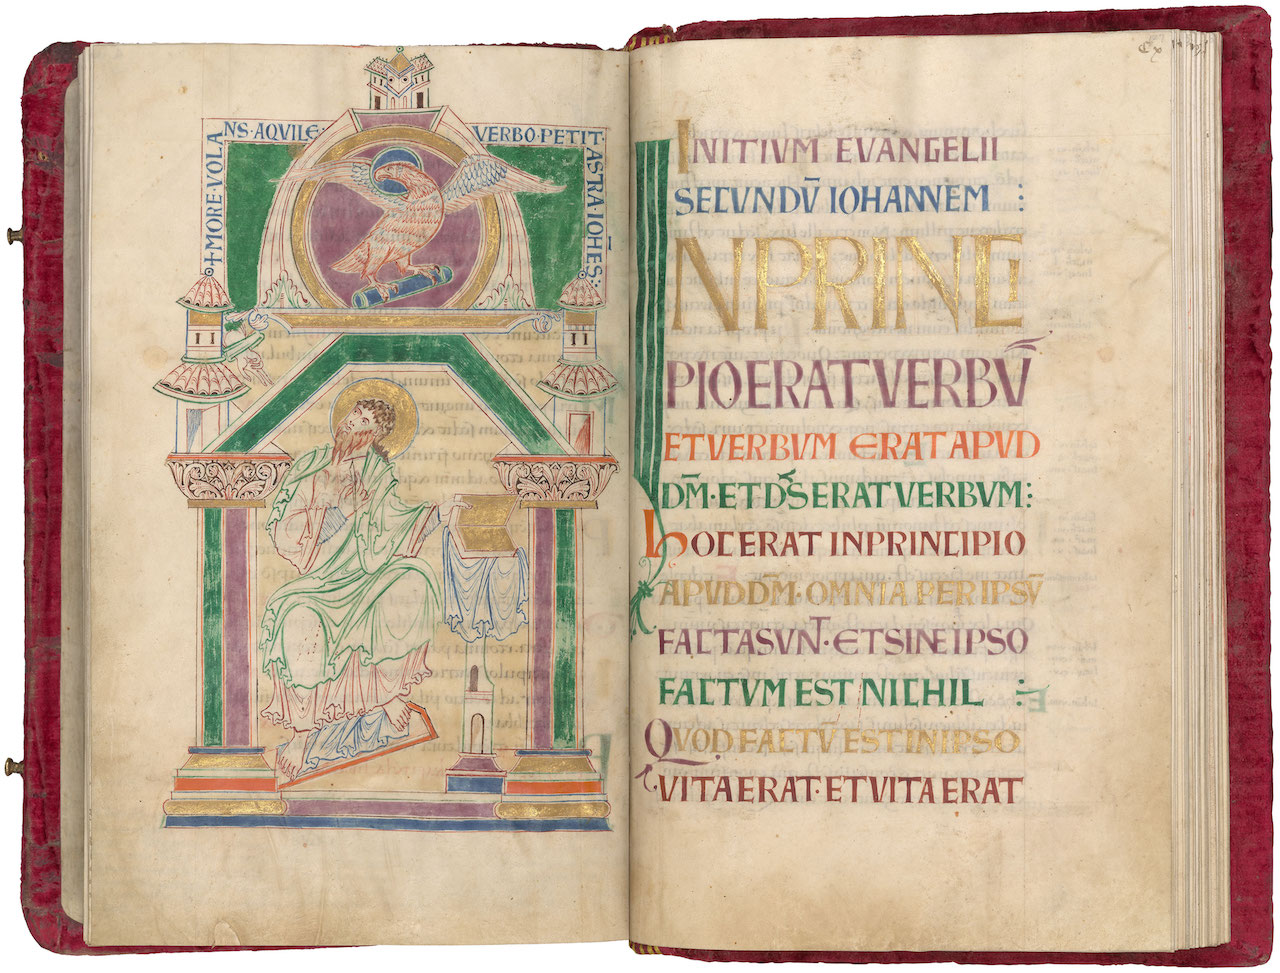 +MORE·VOLA
NS·AQVILE·
VERBO·PETIT
ASTRA·IOHES:
INITIVM EVANGELII
SECVNDV̄ IOHANNEM :
INPRINCI
PIOERATVERBV̄
ETVERBVM ERATAPVD
DM̄·ETDS̄ERATVERBVM:
hOCERATINPRINCIPIO
APVDDM̄·OMNIA PERIPSV̄
FACTASVNT·ETSINEIPSO
FACTVM EST NICHIL :
QVOD FACTV̄ ESTINIPSO
VITAERAT·ETVITAERAT